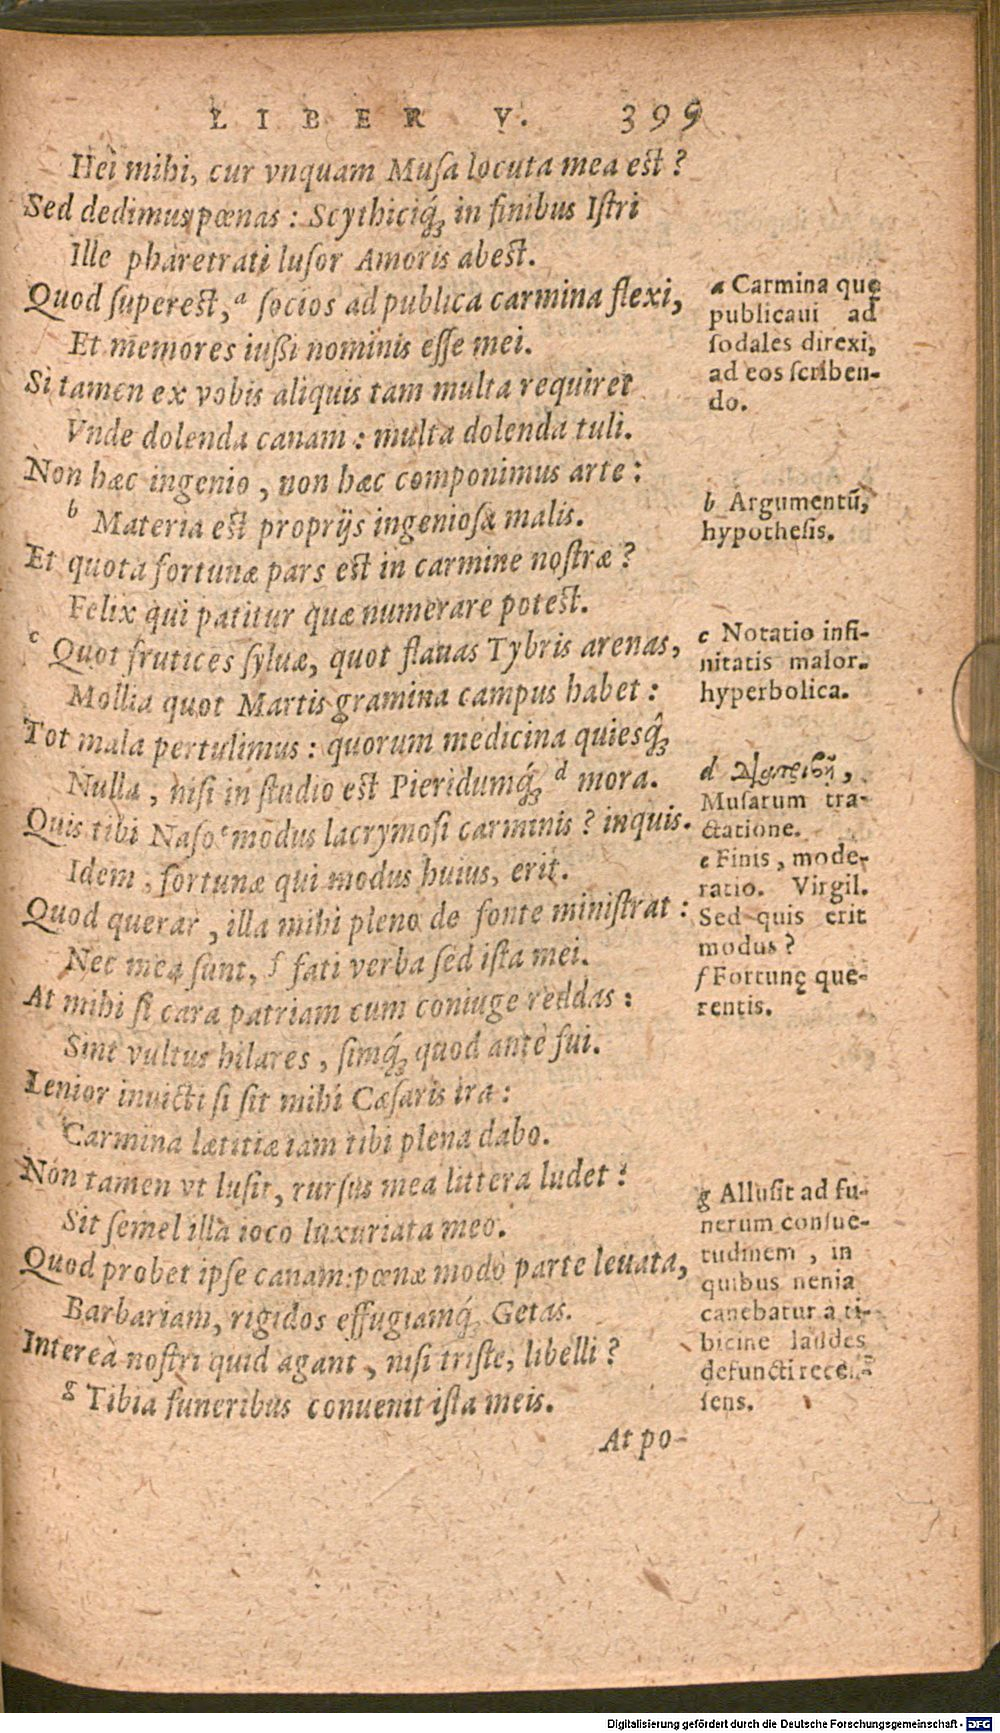 LIBER V. 399
Hei mihi, cur vnquam Muſa locuta mea est?
Sed dedimus pœnas: Scythiciq́ꝫ in finibus Iſtri
Ille pharetrati luſor Amoris abest.
Quod ſuperest, ᵃ ſocios ad publica carmina flexi,
Et memores iußi nominis eſſe mei.
Si tamen ex vobis aliquis tam multa requiret
Vnde dolenda canam: multa dolenda tuli.
Non hæc ingenio, non hæc componimus arte:
ᵇ Materia est proprijs ingenioſa malis.
Et quota fortunæ pars est in carmine noſtræ?
Felix qui patitur quæ numerare potest.
ᶜ Quot frutices ſyluæ, quot flauas Tybris arenas,
Mollia quot Martis gramina campus habet:
Tot mala pertulimus: quorum medicina quiesq́ꝫ
Nulla, niſi in ſtudio est Pieridumq́ꝫ ᵈ mora.
Quis tibi Naſo ᵉ modus lacrymoſi carminis? inquis.
Idem, fortunæ qui modus huius, erit.
Quod querar, illa mihi pleno de fonte miniſtrat:
Nec mea ſunt, ᶠ fati verba ſed iſta mei.
At mihi ſi cara patriam cum coniuge reddas:
Sint vultus hilares, ſimq́ꝫ quod antè fui.
Lenior inuicti ſi ſit mihi Cæſaris ira:
Carmina lætitiæ iam tibi plena dabo.
Non tamen vt luſit, rurſus mea littera ludet:
Sit ſemel illa ioco luxuriata meo.
Quod probet ipſe canam: pœnæ modo parte leuata,
Barbariam, rigidos effugiamq́ꝫ Getas.
Intereà noſtri quid agant, niſi triſte, libelli?
ᵍ Tibia funeribus conuenit iſta meis.
At po-
a Carmina quę
publicaui ad
ſodales direxi,
ad eos ſcriben-
do.
b Argumentū,
hypotheſis.
c Notatio infi-
nitatis malor.
hyperbolica.
d Διατριβῇ,
Muſarum tra-
ctatione.
e Finis, mode-
ratio. Virgil.
Sed quis erit
modus?
f Fortunę que-
rentis.
g Alluſit ad fu-
nerum conſue-
tudinem, in
quibus nenia
canebatur a ti-
bicine laudes
defuncti recen-
ſens.
Digitalisierung gefördert durch die Deutsche Forschungsgemeinschaft - DFG